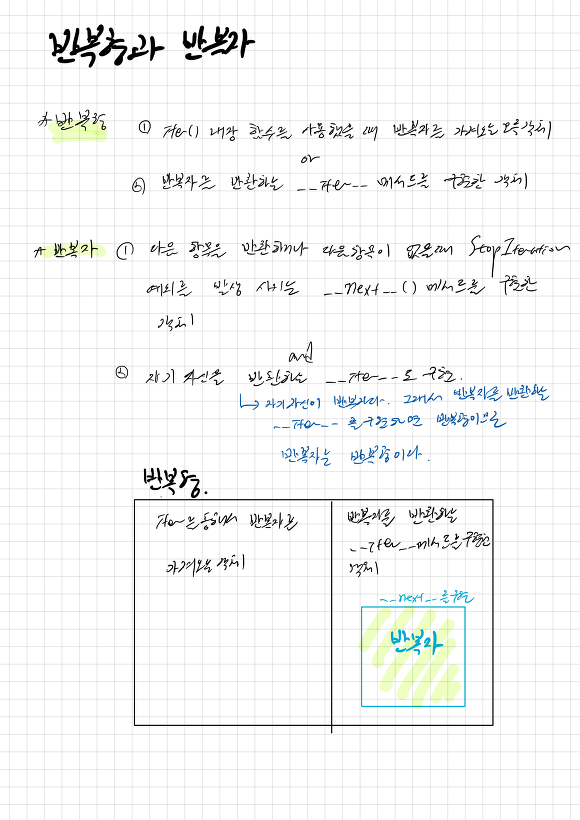 반복형과 반복자
* 반복형 ① iter() 내장 함수를 사용했을 때 반복자를 가져오는 모든 객체
or
② 반복자를 반환하는 __iter__ 메서드를 구현한 객체
* 반복자 ① 다음 항목을 반환하거나 다음 항목이 없을 때 StopIteration
예외를 발생 시키는 __next__() 메서드를 구현한
객체
and
② 자기 자신을 반환하는 __iter__도 구현.
↳ 자기 자신이 반복자라. 그래서 반복자를 반환하는
__iter__를 구현하면 반복형이므로
반복자는 반복형이다.
반복형.
iter를 통해서 반복자를
가져오는 객체
반복자를 반환하는
__iter__메서드를 구현한
객체
__next__를 구현
반복자